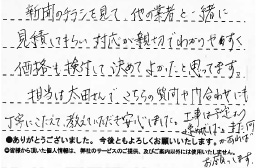 新聞のチラシを見て、他の業者と一緒に
見積してもらい対応が親切でわかりやすく
価格も検討して決めてよかったと思ってます。
担当は太田さんで、こちらの質問や打合わせにも
丁寧にこたえて、教えていただき安心しました。
工事は予定より
また何かあれば
お願いします。
●ありがとうございました。今後ともよろしくお願いいたします。
●皆様から頂いた個人情報は、弊社のサービスのご提供、及びご案内以外には使用いたしません。